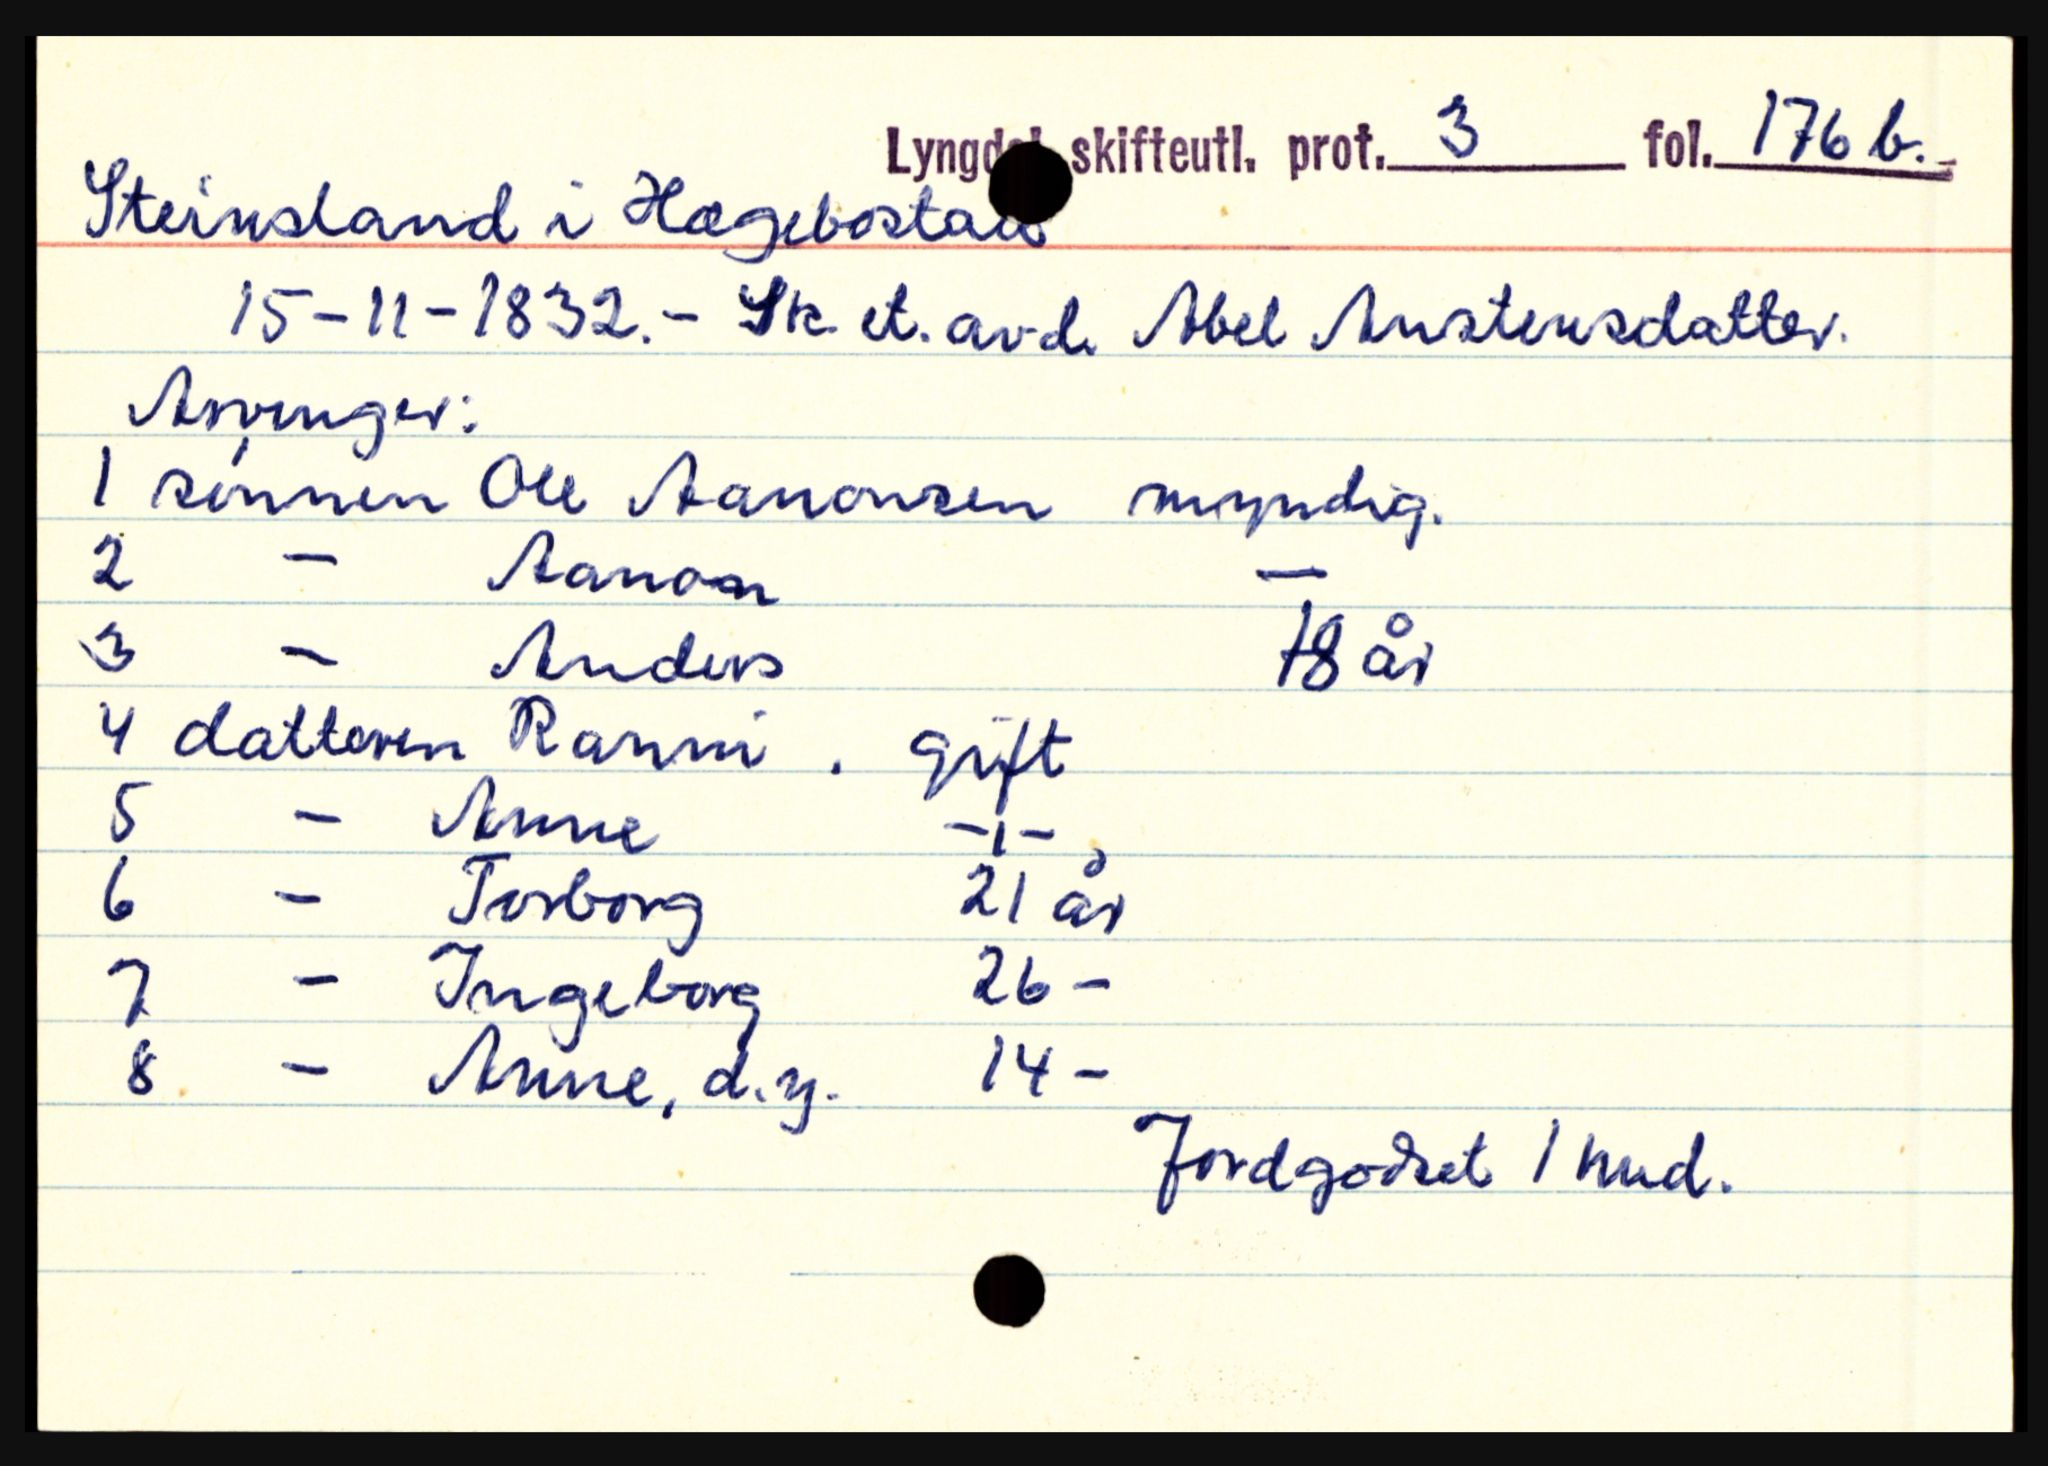 Lyngdal skifteutl. prot. 3 fol. 176 b.
Steinsland i Hægebostad
15-11-1832.- Sk. et. avd. Abel Austensdatter.
Arvinger:
1 sønnen Ole Aanonsen myndig.
2 - Aanon -
3 - Anders 18 år
4 datteren Ranni. gift
5 - Anne -ı-
6 - Torborg 21 år
7 - Ingeborg 26 -
8 - Anne, d.y. 14 -
Jordgodset 1 hud.